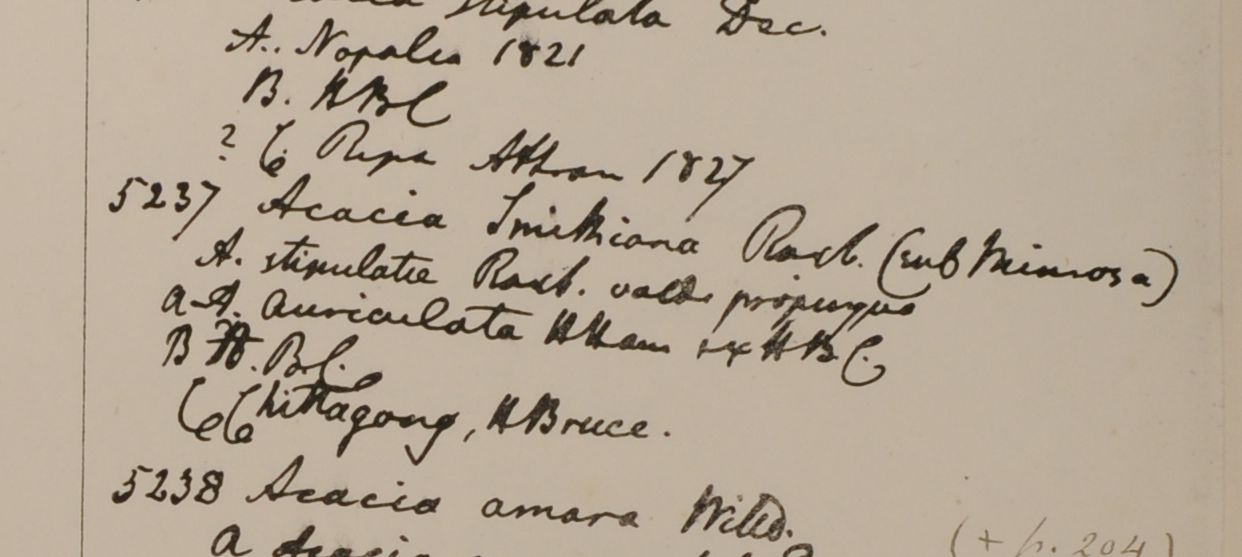 stipulata Dec.
A. Nopalia 1821
B. HBC
? C. Ripa Athran 1827
5237 Acacia Smithiana Roxb. (sub Mimosa)
A. stipulatæ Roxb. valde propinqua
a A. auriculata HHam ex HBC.
B H. BC.
C Chittagong, HBruce.
5238 Acacia amara Willd.
a Acacia
(+ p. 204)